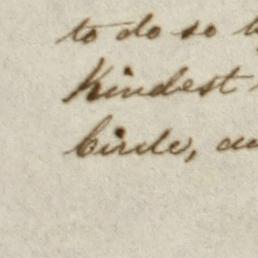 to do so
Kindest
Circle,